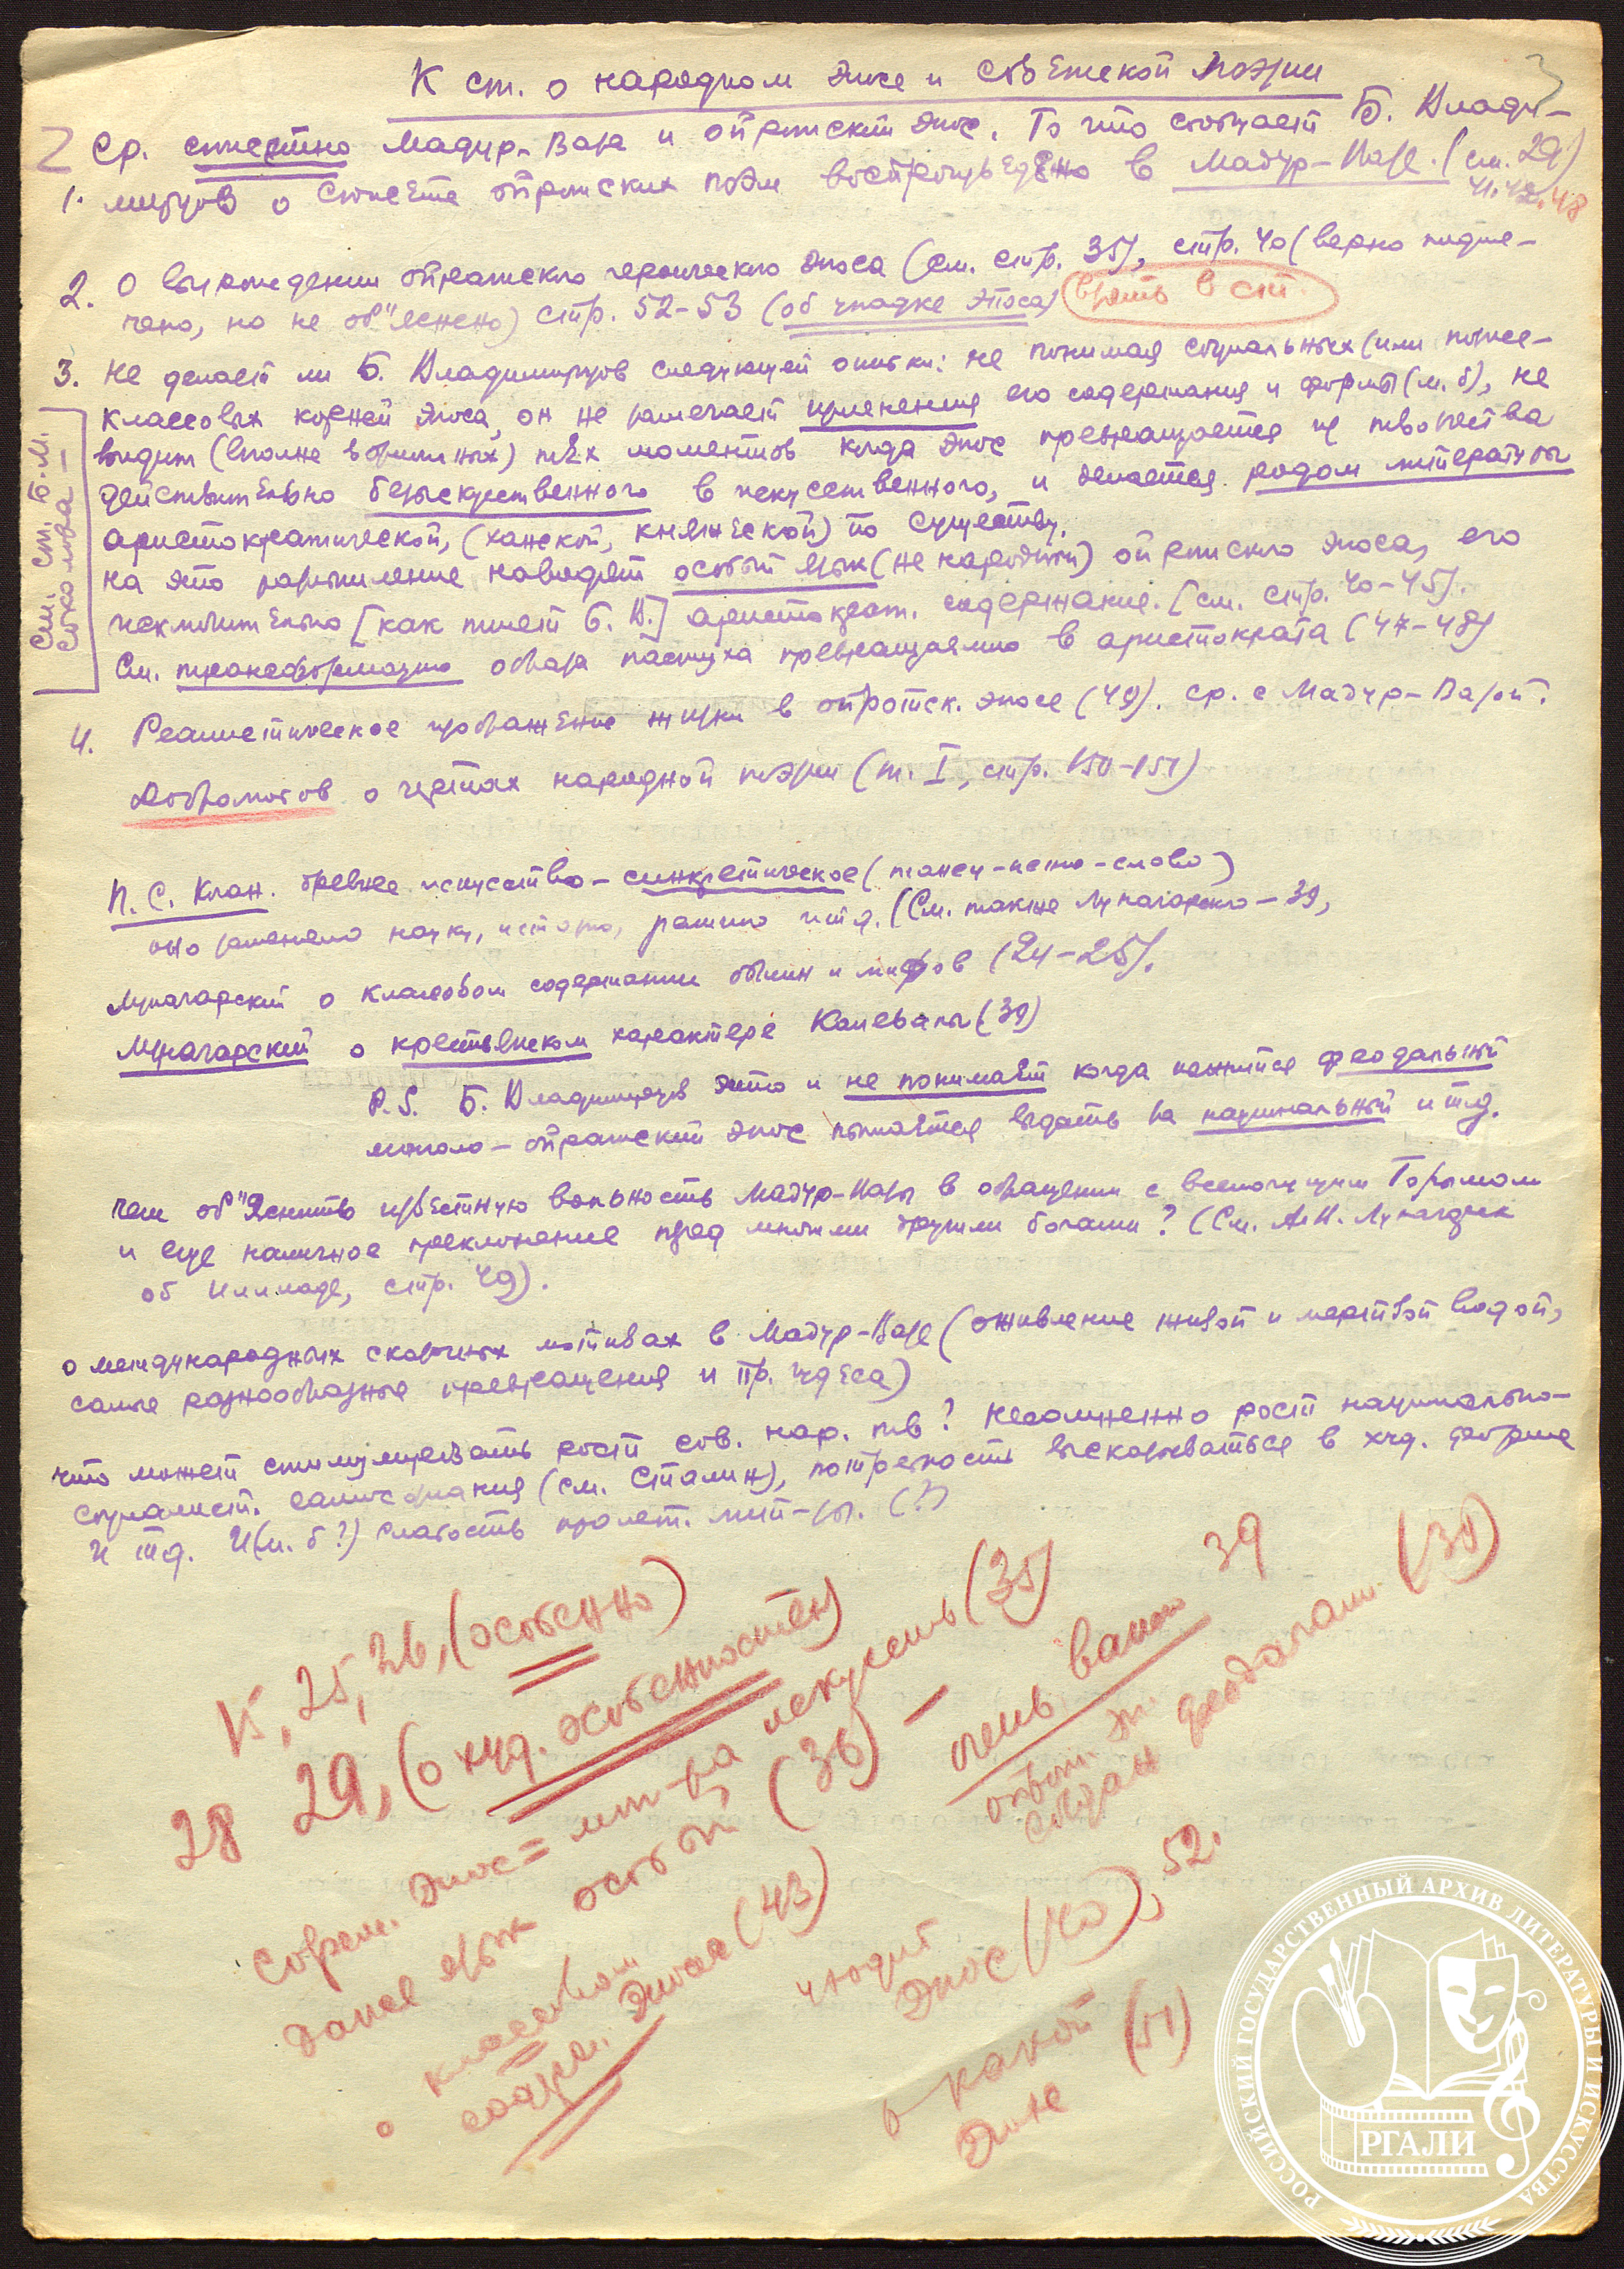 К ст. о народном эпосе и советской поэзии
3
Ср. сюжетно Мадур-Вазу и ойратский эпос. То что сообщает Б. Влади-
1. мирцов о сюжете ойратских поэм воспроизведено в Мадур-Вазе. (см. 29)
41. 42. 48
2. О вырождении ойратского героического эпоса (см. стр. 35), стр. 40 (верно подме-
чено, но не об"яснено) стр. 52-53 (об упадке эпоса) взять в ст.
3. Не делает ли Б. Владимирцов следующей ошибки: не понимая социальных (или позже-
классовых корней эпоса, он не замечает изменения его содержания и формы (м. б), не
видит (вполне возможных) тех моментов когда эпос превращается из творчества
действительно безыскусственного в искусственного, и делается родом литературы
аристократической, (ханской, княжеской) по существу.
На это размышление наводят особый язык (не народный) ойратского эпоса, его
исключительно [как пишет Б. В.] аристократ. содержание. [см. стр. 40-45].
См. трансформацию образа пастуха превращаемого в аристократа (47-48)
См. ст. Б.-М.
Соколова —
4. Реалистическое изображение жизни в ойротск. эпосе (49). ср. с Мадур-Вазой.
Добролюбов о чертах народной поэзии (т. I, стр. 150-151)
П. С. Коган. Древнее искусство – синкретическое (танец-пение-слово)
оно заменяло науку, историю, религию и т.д. (См. также Луначарского – 39,
Луначарский о классовом содержании былин и мифов (24-25).
Луначарский о крестьянском характере Калевалы (39)
P.S. Б. Владимирцов это и не понимает когда кажется феодальный
монголо-ойратский эпос пытается выдать за национальный и т.д.
Чем об"яснить известную вольность Мадур-Вазы в обращении с всемогущим Гормоном
и еще наличное преклонение пред многими другими богами? (См. А.В. Луначарск
об Иллиаде, стр. 49).
О международных сказочных мотивах в Мадур-Вазе (оживление живой и мертвой водой,
самые разнообразные превращения и пр. чудеса)
Что может стимулировать рост сов. нар. тв? Несомненно рост национально-
социалист. самосознания (см. Сталин), потребность высказываться в худ. форме
и т.д. И (м. б?) слабость пролет. лит-ры. (?)
15, 25, 26, (особенно)
28 29, (о худ. особенностях)
Соврем. эпос = лит-ра искусств (35)
даже язык особый (36) – очень важно 39
эпос создан феодалами (38)
о классовом
содерж. эпоса (43)
чтодит
эпос (40), 52.
о какой (51)
эпохе
РОССИЙСКИЙ ГОСУДАРСТВЕННЫЙ АРХИВ ЛИТЕРАТУРЫ И ИСКУССТВА
РГАЛИ